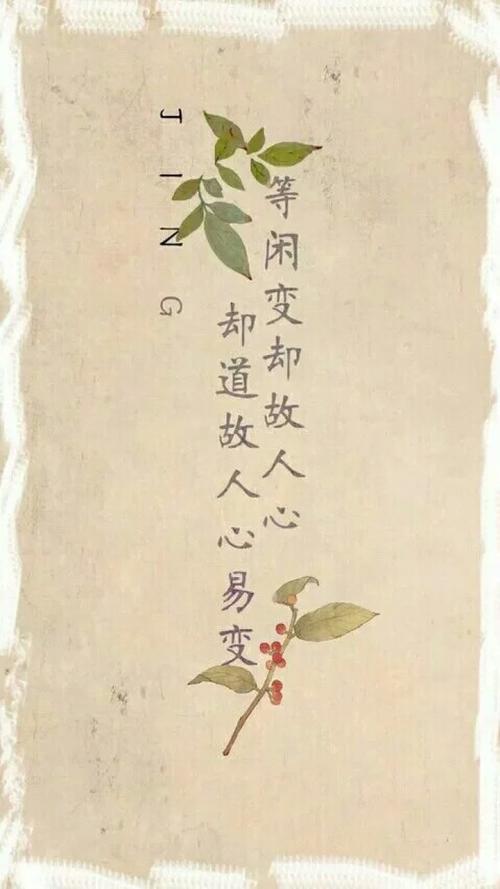 等闲变却故人心
却道故人心易变
JING